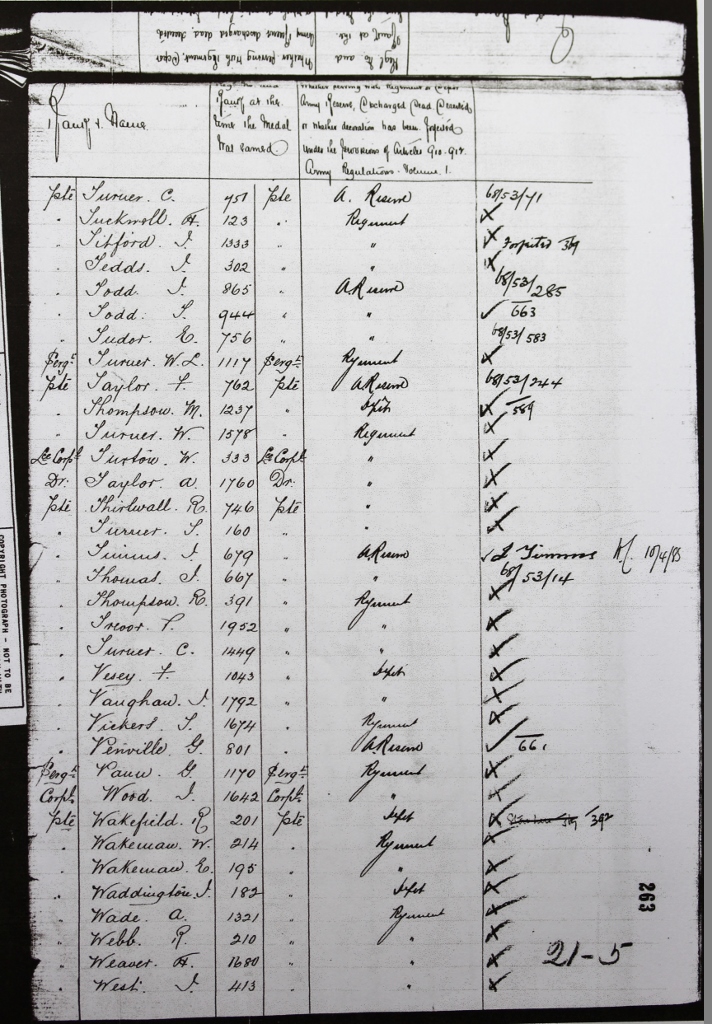 Rank & Name
Rank at the
time the Medal
was earned
Whether serving with Regiment or Depot
Army Reserve, Discharged Dead Deserted
or whether decoration has been forfeited
under the provisions of Articles 910-917
Army Regulations. Volume 1.
Pte Turner. C. 951 Pte A. Reserve 68/53/71
" Tuckwell. H. 123 " Regiment X
" Titford. J. 1333 " " X Forfeited
" Tedds. J. 302 " " X
" Todd. J. 865 " A Reserve 68/53/285
" Todd. T. 944 " " ✓ 663
" Tudor. E. 756 " " 68/53/583
Sergt Turner. W. L. 1117 Sergt Regiment X
Pte Taylor. F. 762 Pte A Reserve 68/53/244
" Thompson. M. 1237 " Depot X 589
" Turner. W. 1578 " Regiment X
Lce Corpl Turton. W. 333 Lce Corpl " X
Dr: Taylor. A. 1760 Dr: " X
Pte Thirlwall. R. 746 Pte " X
" Turner. T. 160 " " X
" Timms. J. 679 " A Reserve ✓ J Timms 10/4/85
" Thomas. J. 667 " " 68/53/14
" Thompson. R. 391 " Regiment X
" Trevor. P. 1952 " " X
" Turner. C. 1449 " " X
" Vesey. F. 1043 " Depot X
" Vaughan. J. 1792 " " X
" Vickers. T. 1674 " Regiment X
" Venville. G. 801 " A. Reserve ✓ 661
Sergt Vann. G. 1170 Sergt Regiment X
Corpl Wood. J. 1642 Corpl " X
Pte Wakefield. R. 201 Pte Depot X 392
" Wakeman. W. 214 " Regiment X
" Wakeman. E. 195 " " X
" Waddington. J. 182 " Depot X
" Wade. A. 1321 " Regiment X
" Webb. R. 210 " " X
" Weaver. H. 1680 " " X
" West. J. 413 " " X
21-5
263
COPYRIGHT PHOTOGRAPH - NOT TO BE